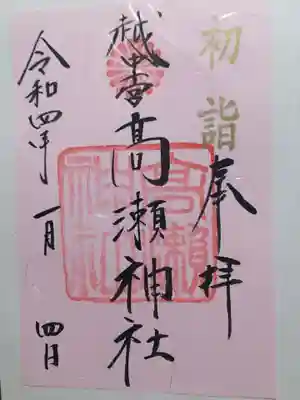 初詣
奉拝
越中一宮
高瀬神社
高瀬神社
令和四年
一月
四日